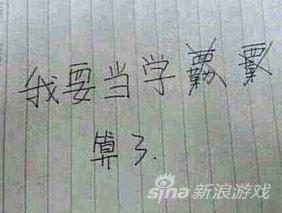 我要当学
算了.
sina 新浪游戏